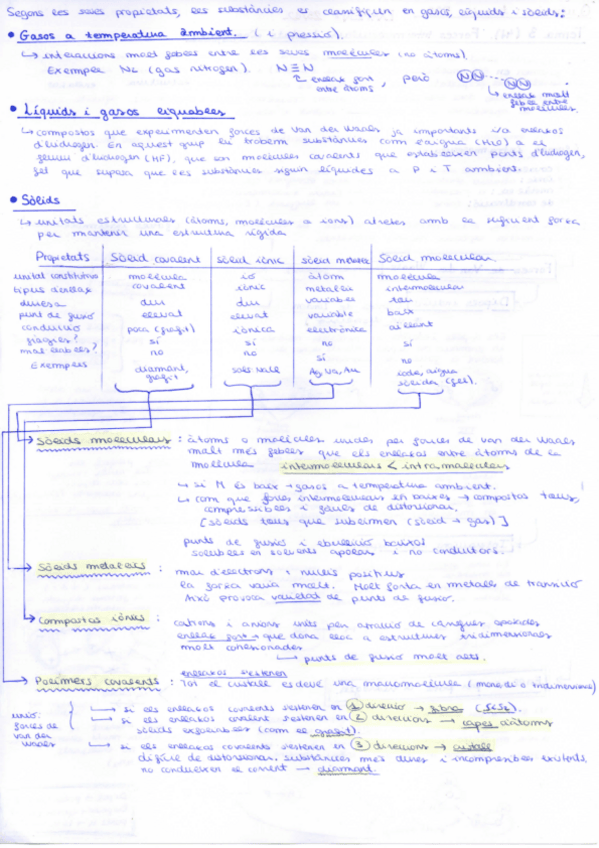 Segons les seves propietats, les substàncies es classifiquen en gasos, líquids i sòlids:
• Gasos a temperatura ambient. (i pressió).
↳ interaccions molt febles entre les seves molècules (no àtoms).
Exemple N2 (gas nitrogen). N≡N però
↳ enllaç fort entre àtoms
↳ enllaç molt feble entre molècules.
• Líquids i gasos liquables
↳ compostos que experimenten forces de Van der Waals ja importants i/o enllaços
d'hidrogen. En aquest grup hi trobem substàncies com l'aigua (H2O) o el
(HF), que són molècules covalents que estableixen ponts d'hidrogen,
fet que suposa que les substàncies siguin líquides a P i T ambient.
• Sòlids
↳ unitats estructurals (àtoms, molècules o ions) atretes amb la suficient força
per mantenir una estructura rígida
Propietats Sòlid covalent sòlid iònic sòlid metàl·lic Sòlid molecular
unitat constitutiva molècula ió àtom molècula
tipus d'enllaç covalent iònic metàl·lic intermolecular
duresa dur dur variable tou
punt de fusió elevat elevat variable baix
conducció poca (grafit) iònica electrònica aïllant
fràgils? sí sí no no
mal·leables? no no sí no
Exemples diamant, grafit sals NaCl Ag, Na, Au iode, aigua sòlida (gel).
Sòlids moleculars : àtoms o molècules unides per forces de van der Waals
molt més febles que els enllaços entre àtoms de la
molècula intermoleculars < intramoleculars
↳ si M és baix → gasos a temperatura ambient.
↳ com que forces intermoleculars són baixes → compostos tous,
compressibles i fàcils de distorsionar.
[sòlids tous que sublimen (sòlid → gas)]
punts de fusió i ebullició baixos
solubles en solvents apolars i no conductors.
Sòlids metàl·lics : mar d'electrons + nuclis positius
la força varia molt. Molt forta en metalls de transició
Això provoca varietat de punts de fusió.
Compostos iònics : cations i anions units per atracció de càrregues oposades
enllaç fort → que dona lloc a estructures tridimensionals
molt cohesionades
↳ punts de fusió molt alts.
Polímers covalents : Tot el cristall esdevé una macromolècula (mono, di o tridimensional)
enllaços s'estenen
unió: forces de van der Waals
↳ si els enllaços covalents s'estenen en 1 direcció → fibra
↳ si els enllaços covalent s'estenen en 2 direccions → capes d'àtoms
sòlids (com el grafit).
↳ si els enllaços covalents s'estenen en 3 direccions → cristall
difícil de distorsionar, substàncies més dures i incompressibles existents.
no condueixen el corrent → diamant.